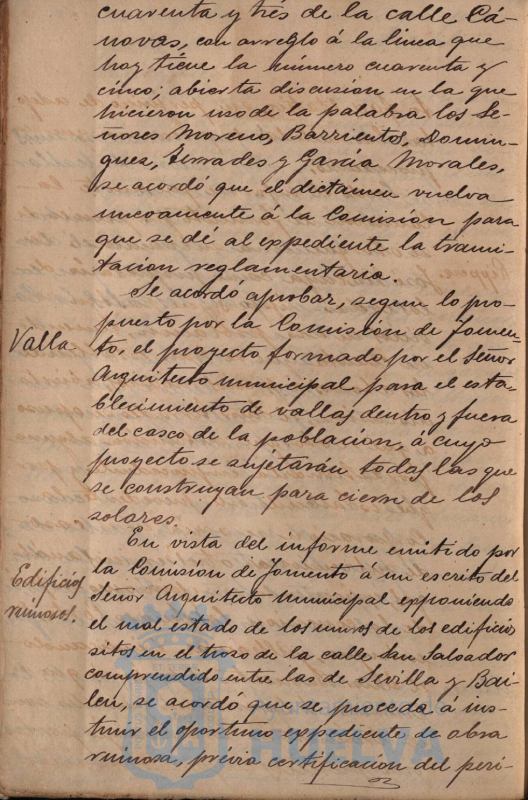 cuarenta y trés de la calle Cá-
novas, con arreglo á la linea que
hoy tiene la número cuarenta y
cinco; abierta discusion en la que
hicieron uso de la palabra los Se-
ñores Moreno, Barrientos, Domin-
guez, Terrades y García Morales,
se acordó que el dictámen vuelva
nuevamente á la Comision para
que se dé al expediente la trami-
tacion reglamentaria.
Se acordó aprobar, segun lo pro-
puesto por la Comision de Fomen-
Valla
to, el proyecto formado por el Señor
Arquitecto municipal para el esta-
blecimiento de vallas dentro y fuera
del casco de la poblacion, á cuyo
proyecto se sujetarán todas las que
se construyan para cierre de los
solares.
En vista del informe emitido por
la Comision de Fomento á un escrito del
Edificios
ruinosos.
Señor Arquitecto municipal exponiendo
el mal estado de los muros de los edificios
sitos en el trozo de la calle San Salvador
comprendido entre las de Sevilla y Bai-
len, se acordó que se proceda á ins-
truir el oportuno expediente de obra
ruinosa, prévia certificacion del peri-
HUELVA